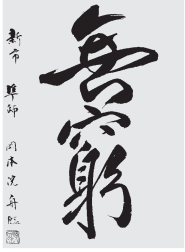 無窮
新市 準師 岡本滉舟臨